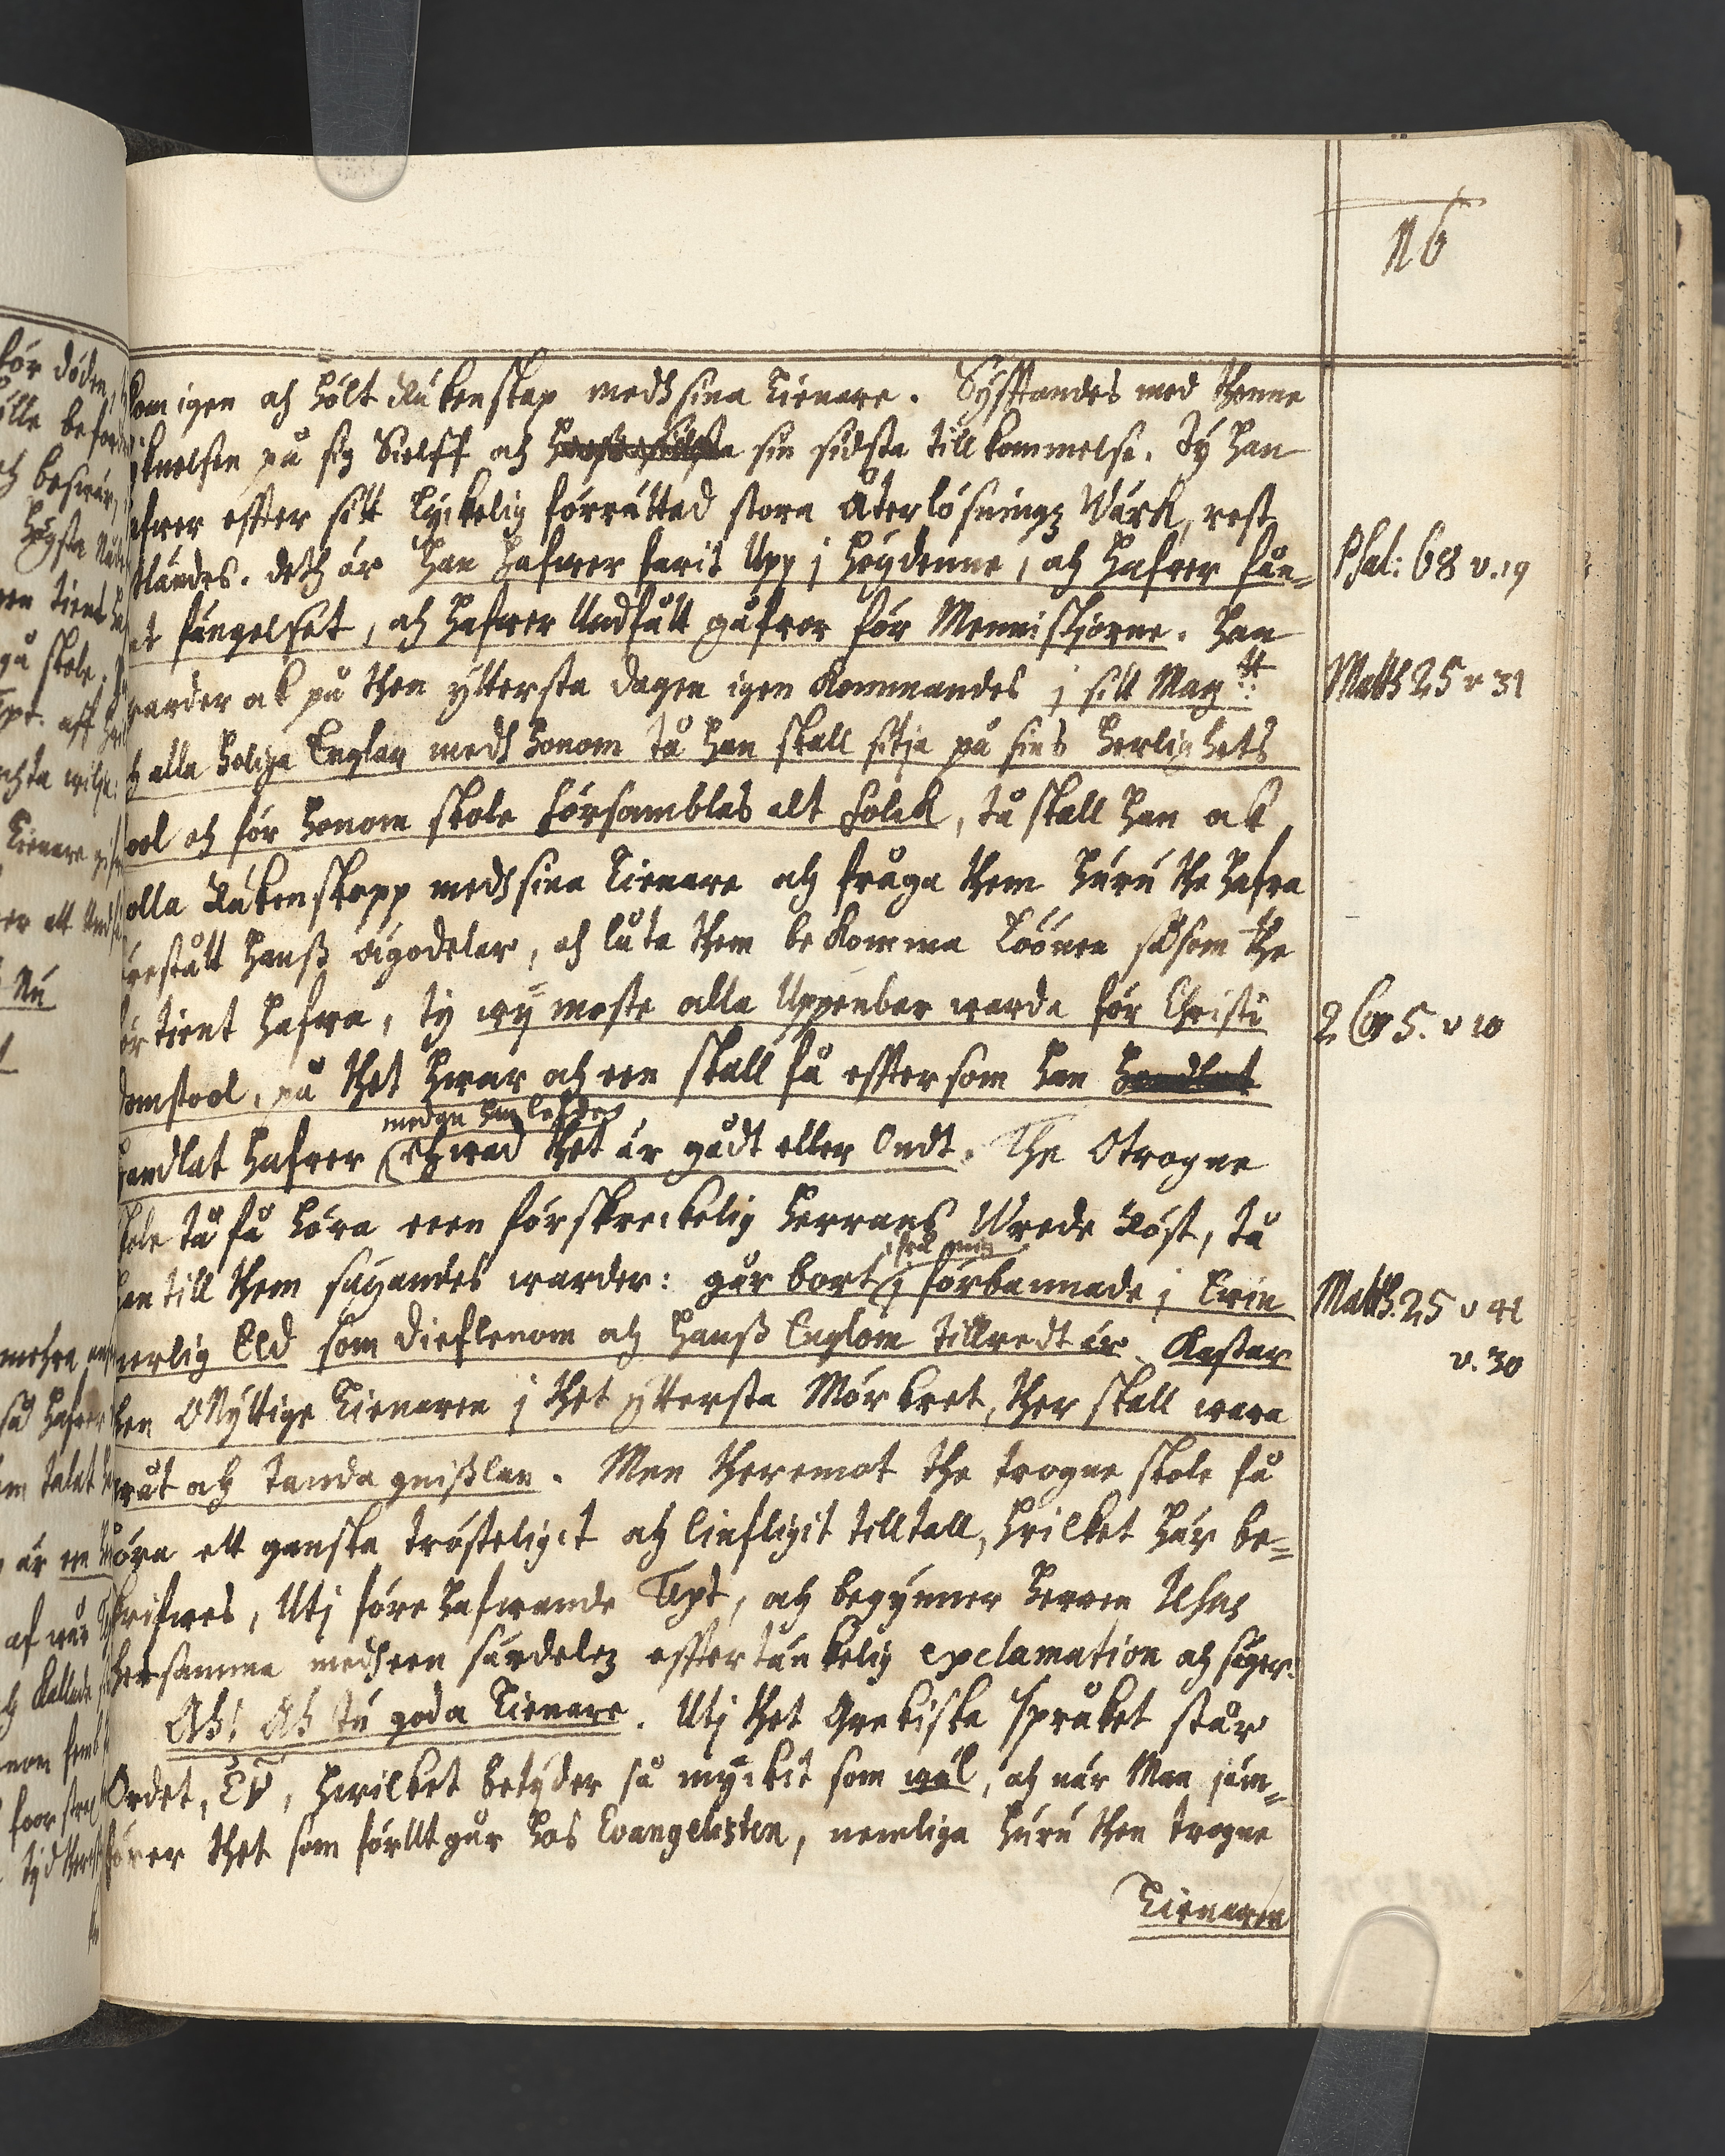 16
kom igen och hölt Räkenskap medh sina Tienare. Syfftandes med thenne
lijknelsen på sig Sielff och sin sidsta till kommelse. Ty han
hafwer effter sitt Lyckelig förrättad stora Återlösningz Wärk, rest
Vtländes. deth är han hafwer farit Upp j höydenne, och hafwer fån-
Psal: 68 v. 19
gat fängelset, och hafwer Undfått gåfwor för Menniskiorne. han
warder ock på then yttersta dagen igen Kommandes j sitt Maytt:
Matth 25 v 31
och alla helige Englar medh honom tå han skall sitja på sins herlighets
stool och för honom skole församblas alt folck, tå skall han ock
holla Räkenskapp medh sina Tienare och fråga them huru the hafwa
förestått hanß ägodelar, och låta them be komma Löönen såsom the
förtient hafwa, ty wy moste alla Uppenbar warda för Christi
2 Cor 5. v 10
domstool, på thet hwar och een skall få efftersom han handlat
medan han lefde
handlat hafwer hwad thet är gådt eller Ondt. The Otrogne
skole tå få höra een förskreckelig Herrans Wrede Röst, tå
ifrå mig
han till them säyandes warder: går bort j förbannade j Ewin
Matth. 25 v 41
nerlig Eld som dieflenom och hanß Englom tillredt är. Kastar
v. 30
then Onyttige Tienaren j thet ytterste Mörkret, ther skall wara
gråt och Tanda gnißlan. Men theremot the trogne skole få
höra ett ganska trösteligit och liufligit tilltall, hwilket här be-
skrifwes, Utj före hafwande Text, och begynner Herren Jesus
thensamma medh een särdelez effter tänkelig exclamation och säger:
Ah! Ah tu goda Tienare. Utj thet Grekiska språket står
Ordet, εὖ, hwilket betyder så myckit som wäl, och när Man jäm-
förer thet som förUt går hos Evangelisten, nemliga huru then trogne
Tienaren